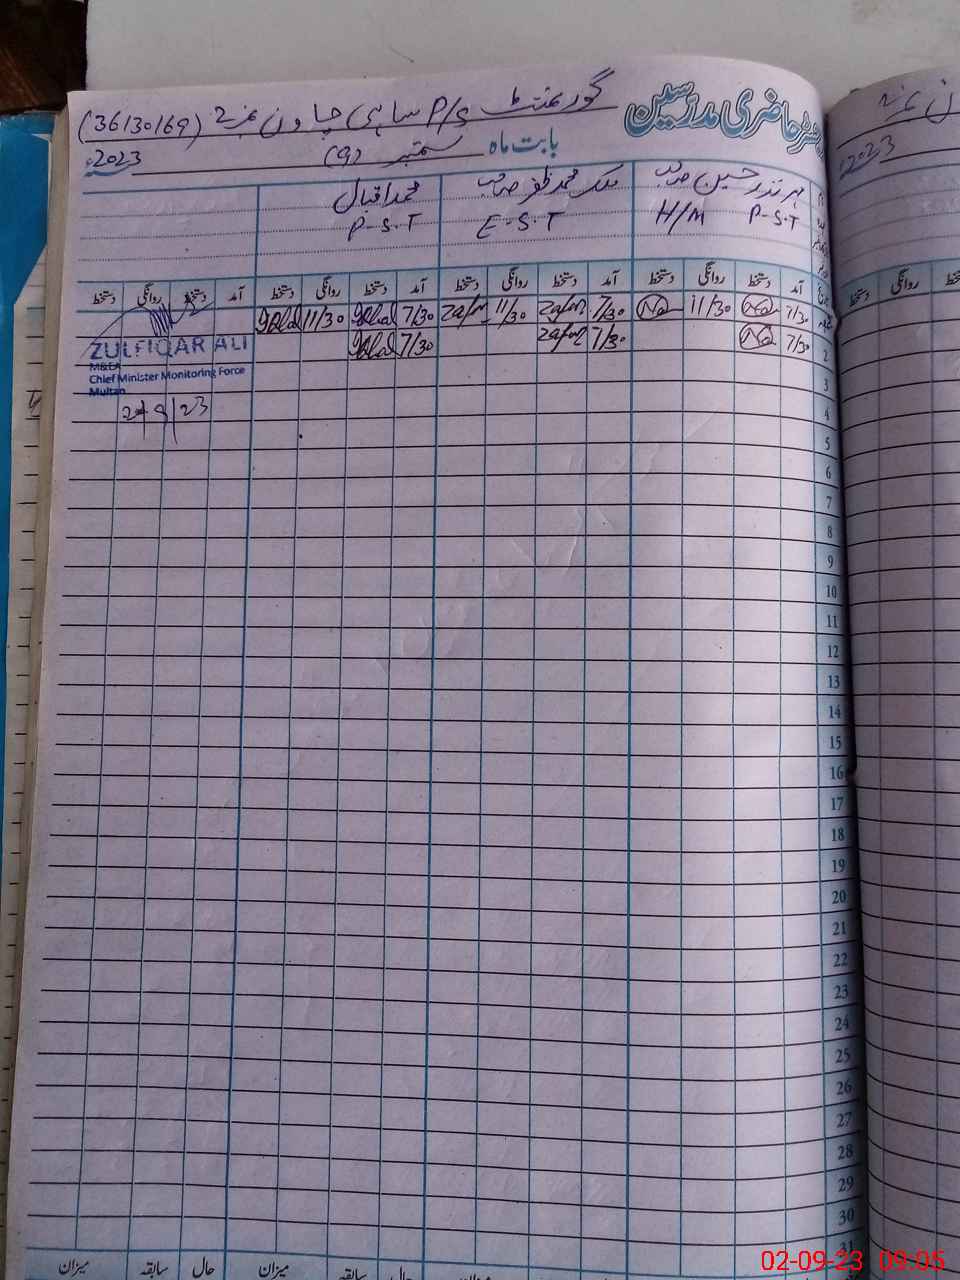 رجسٹر حاضری مدرسین
گورنمنٹ P/S ساہی چاون نمبر 2 (36130169)
بابت ماہ ستمبر (9) 2023ء
مہر نذر حسین صاحب ملک محمد ظفر صاحب محمد اقبال
P-S-T H/M E-S-T P-S-T
آمد دستخط روانگی دستخط آمد دستخط روانگی دستخط آمد دستخط روانگی دستخط آمد دستخط روانگی دستخط
7/30 11/30 7/30 Zafar 11/30 Zafar 7/30 Iqbal 11/30 Iqbal
2 7/30 7/30 Zafar 7/30 Iqbal
ZULFIQAR ALI
M&EA
Chief Minister Monitoring Force
Multan
2/9/23
3
4
5
6
7
8
9
10
11
12
13
14
15
16
17
18
19
20
21
22
23
24
25
26
27
28
29
30
31
میزان حال سابقہ میزان حال سابقہ میزان
روانگی دستخط
2023ء
02-09-23 09:05